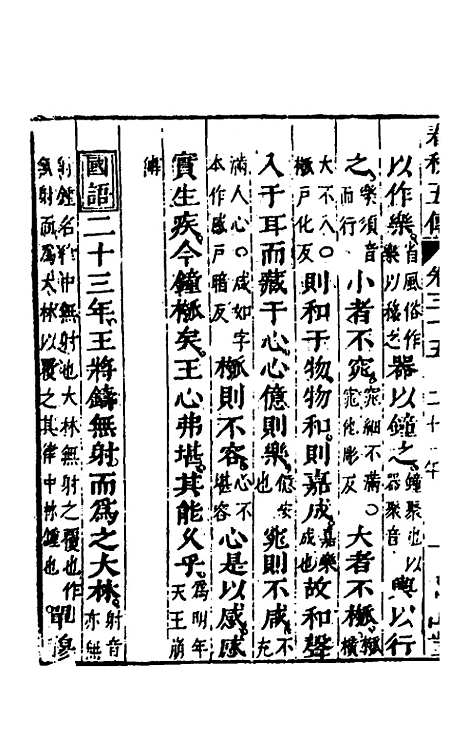 春秋五傳 卷三十五 二十一年
以作樂省風俗作樂以移之器以鐘之鐘聚也以器聚音輿以行
之樂須音而行小者不窕窕細不滿。窕他彫反大者不槬槬橫大不入。槬戶化反則和于物物和則嘉成嘉樂成也故和聲
入于耳而藏于心心億則樂億安也窕則不咸不充滿人心。咸如字本作感戶暗反槬則不容心不堪容心是以感感
實生疾今鐘槬矣王心弗堪其能久乎為明年天王崩
傳
國語二十三年王將鑄無射而為之大林射音亦無射鍾名律中無射也大林無射之覆也作無射而為大林以覆之其律中林鍾也。單穆